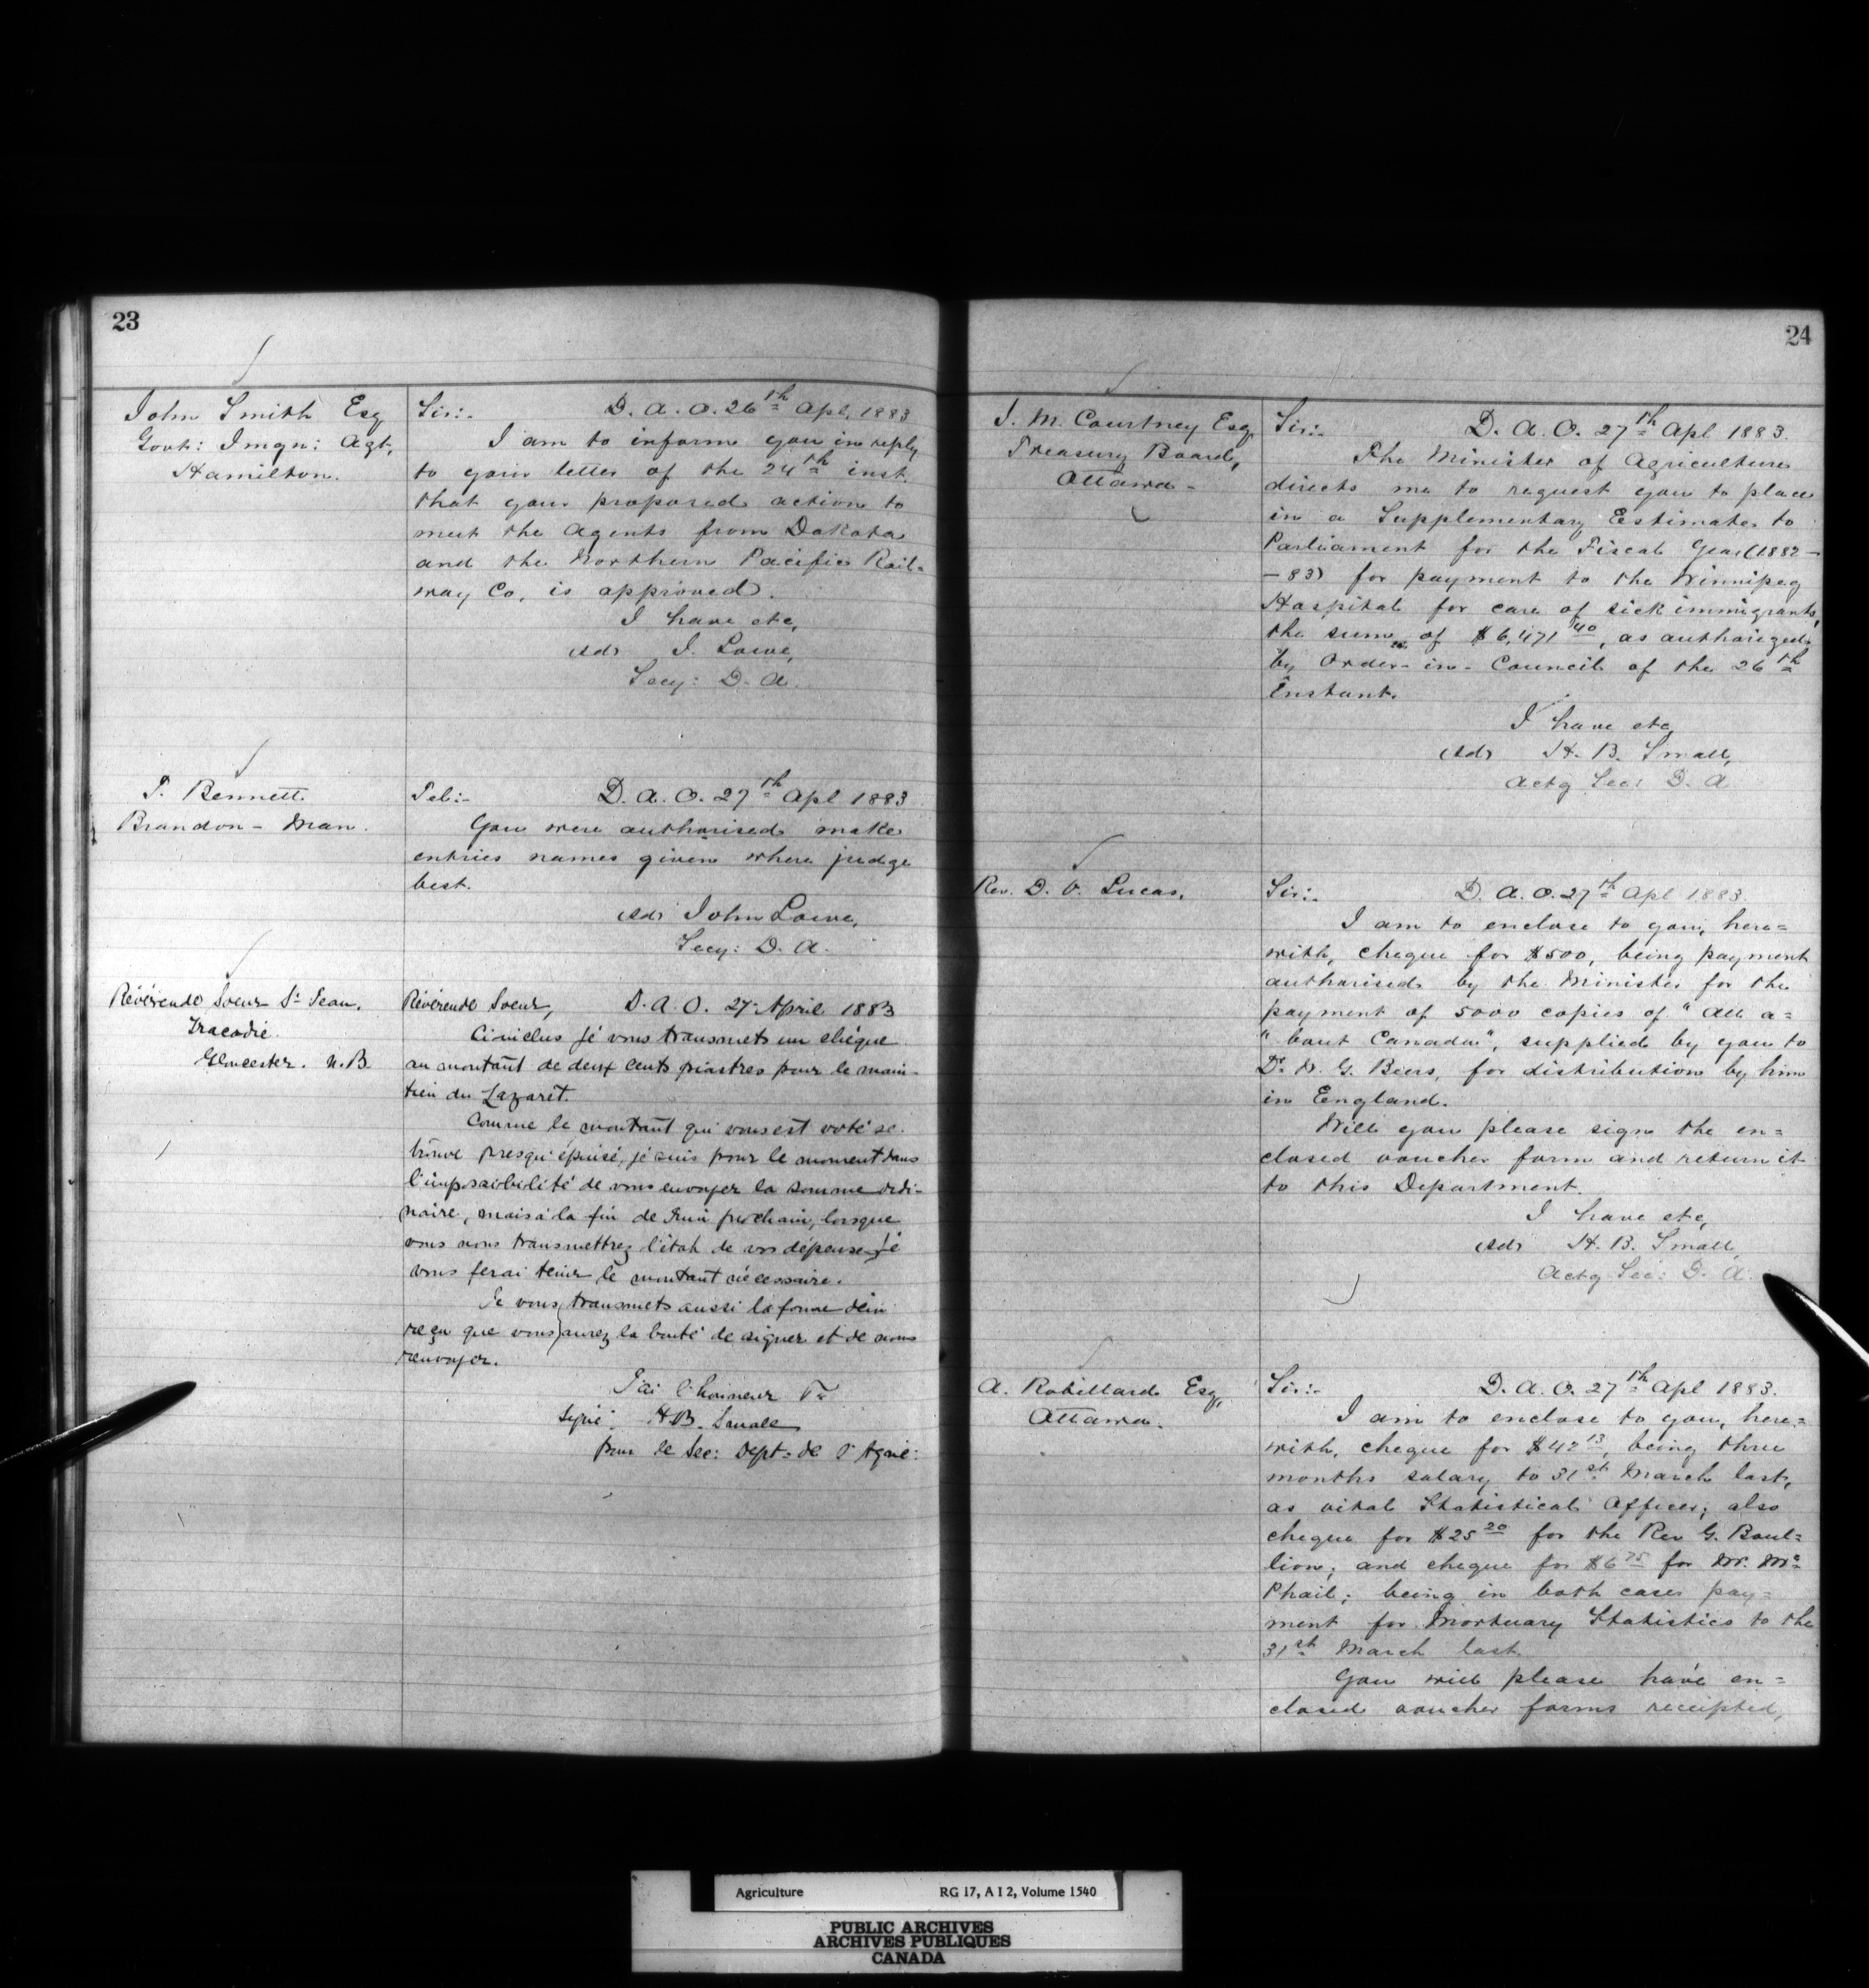 23
John Smith Esq
Govt: Imgn: Agt,
Hamilton.
Sir:- D. A. O. 26th Apl, 1883
I am to inform you in reply
to your letter of the 24th inst.
that your proposed action to
meet the Agents from Dakota
and the Northern Pacific Rail=
way Co, is approved.
I have etc,
(sd) J. Lowe,
Secy: D. A.
T. Bennett.
Brandon - Man.
Tel:- D. A. O. 27th Apl 1883
You were authorised make
entries names given where judge
best.
(sd) John Lowe,
Secy: D. A.
Révérende Soeur St Jean.
Tracadie.
Gloucester. N.B.
Révérende Soeur, D. A. O. 27 April 1883
Ci-inclus je vous transmets un chèque
au montant de deux cents piastres pour le main-
tien du Lazaret.
Comme le montant qui vous est voté se
trouve presqu'épuisé, je suis pour le moment dans
l'impossibilité de vous envoyer la somme ordi-
naire, mais à la fin de Juin prochain, lorsque
vous nous transmettrez l'état de vos dépenses je
vous ferai tenir le montant nécessaire.
Je vous transmets aussi la forme d'un
reçu que vous aurez la bonté de signer et de nous
renvoyer.
J'ai l'honneur &c
Signé. H.B. Small
pour le Sec: Dept. de l'Agric:
24
J. M. Courtney Esq.
Treasury Board,
Ottawa -
Sir:- D. A. O. 27th Apl 1883.
The Minister of Agriculture
directs me to request you to place
in a Supplementary Estimate to
Parliament for the Fiscal Year (1882-
-83) for payment to the Winnipeg
Hospital for care of sick immigrants,
the sum of $6,471 40, as authorized
by Order-in-Council of the 26th
Instant.
I have etc,
(sd) H. B. Small,
Actg Sec: D. A
Rev. D. V. Lucas.
Sir:- D. A. O. 27th Apl 1883.
I am to enclose to you, here=
with, cheque for $500, being payment
authorised by the Minister for the
payment of 5000 copies of "All a=
"bout Canada", supplied by you to
Dr W. G. Beers, for distribution by him
in England.
Will you please sign the en=
closed voucher form and return it
to this Department.
I have etc,
(sd) H. B. Small,
Actg Sec: D. A.
A. Robillard Esq,
Ottawa.
Sir:- D. A. O. 27th Apl 1883.
I am to enclose to you, here=
with, cheque for $42 13, being three
months salary to 31st March last,
as vital Statistical Officer; also
cheque for $25 20 for the Rev G. Boul=
lion; and cheque for $6 75 for Mr. Mc=
Phail; being in both cases pay=
ment for Mortuary Statistics to the
31st March last
You will please have en=
closed voucher forms receipted,
Agriculture RG 17, A I 2, Volume 1540
PUBLIC ARCHIVES
ARCHIVES PUBLIQUES
CANADA